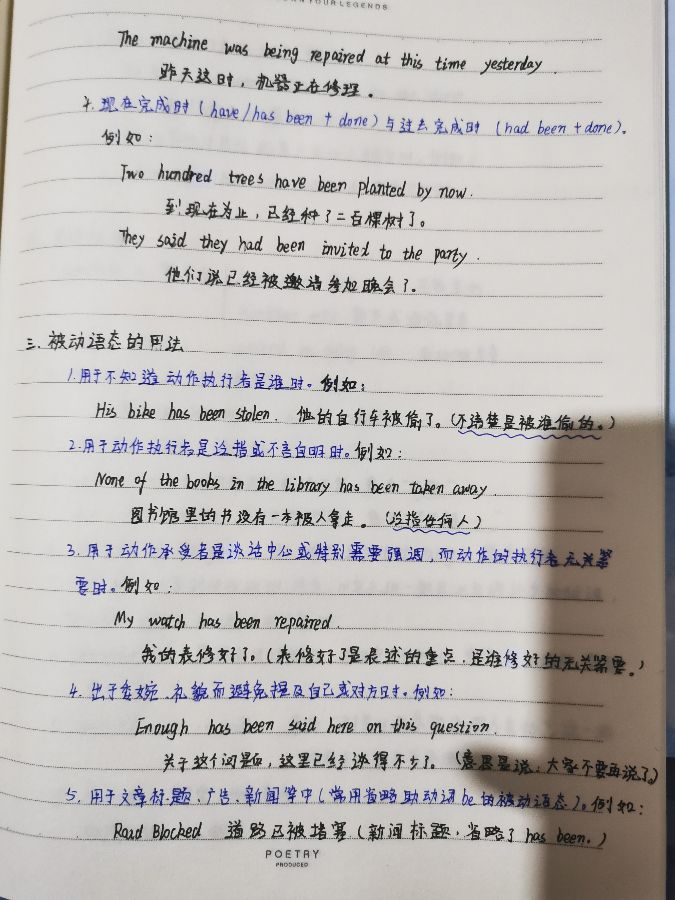 YOUR LEGENDS
The machine was being repaired at this time yesterday.
昨天这时，机器正在修理。
7. 现在完成时（have/has been + done）与过去完成时（had been + done）。
例如：
Two hundred trees have been planted by now.
到现在为止，已经种了二百棵树了。
They said they had been invited to the party.
他们说已经被邀请参加晚会了。
三. 被动语态的用法
1.用于不知道动作执行者是谁时。例如：
His bike has been stolen. 他的自行车被偷了。（不清楚是被谁偷的。）
2.用于动作执行者是泛指或不言自明时。例如：
None of the books in the library has been taken away.
图书馆里的书没有一本被人拿走。（泛指任何人）
3. 用于动作承受者是谈话中心或特别需要强调，而动作的执行者无关紧
要时。例如：
My watch has been repaired.
我的表修好了。（表修好了是表述的重点，是谁修好的无关紧要。）
4. 出于委婉、礼貌而避免提及自己或对方时。例如：
Enough has been said here on this question.
关于这个问题，这里已经谈得不少了。（意思是说：大家不要再说了。）
5. 用于文章标题、广告、新闻等中（常用省略助动词be的被动语态）。例如：
Road Blocked 道路已被堵塞（新闻标题，省略了 has been.）
POETRY
PRODUCED